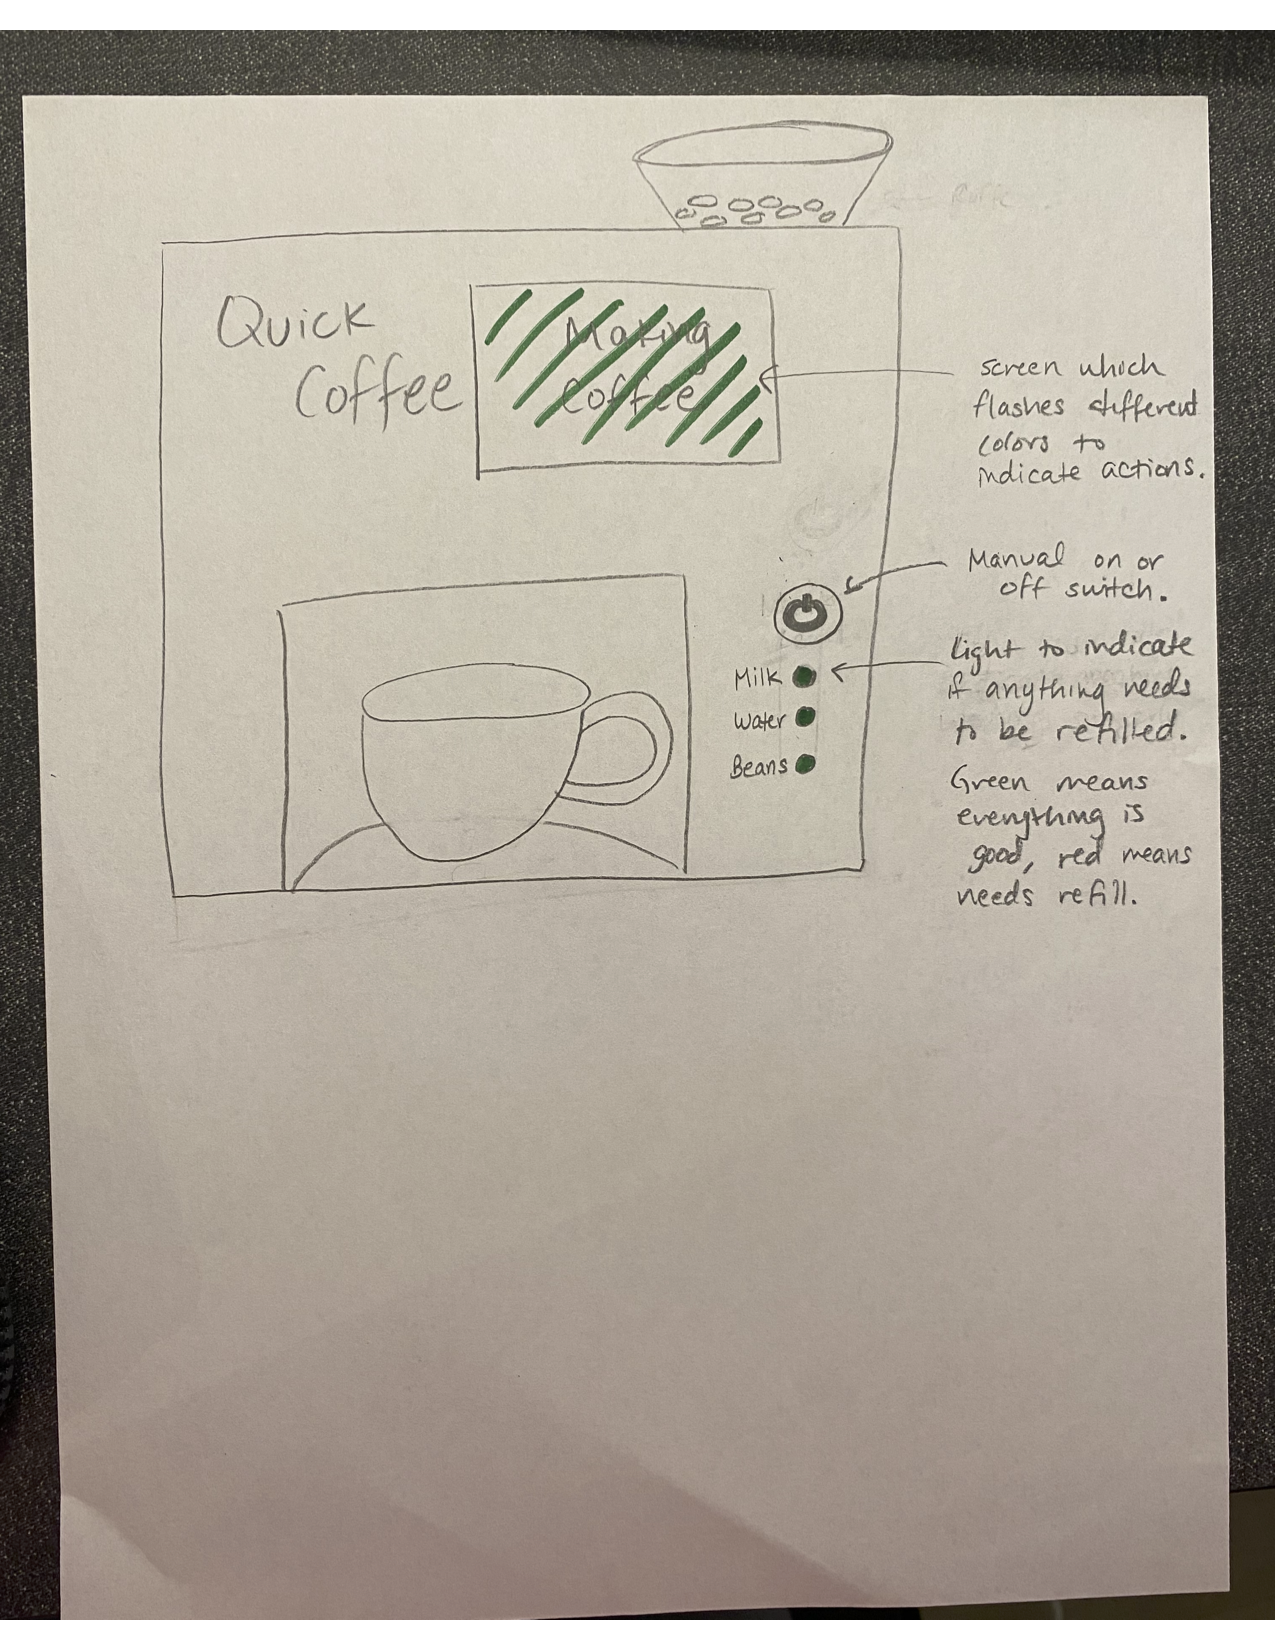 Quick
Coffee
Making
Coffee
screen which
flashes different
colors to
indicate actions.
Manual on or
off switch.
Milk
Water
Beans
Light to indicate
if anything needs
to be refilled.
Green means
everything is
good, red means
needs refill.